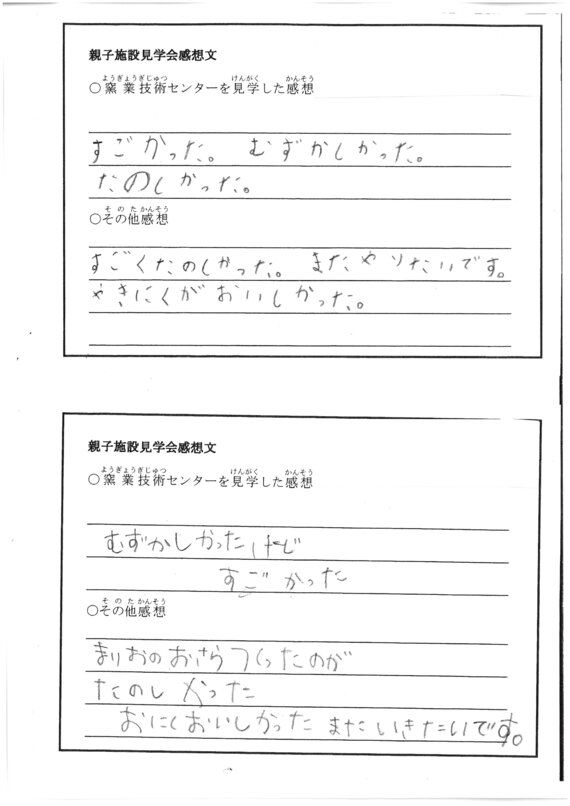 親子施設見学会感想文
ようぎょうぎじゅつ けんがく かんそう
○窯業技術センターを見学した感想
すごかった。 むずかしかった。
たのしかった。
そのたかんそう
○その他感想
すごくたのしかった。 またやりたいです。
やきにくがおいしかった。
親子施設見学会感想文
ようぎょうぎじゅつ けんがく かんそう
○窯業技術センターを見学した感想
むずかしかったけど
すごかった
そのたかんそう
○その他感想
まりおのおさらつくったのが
たのしかった
おにくおいしかった またいきたいです。